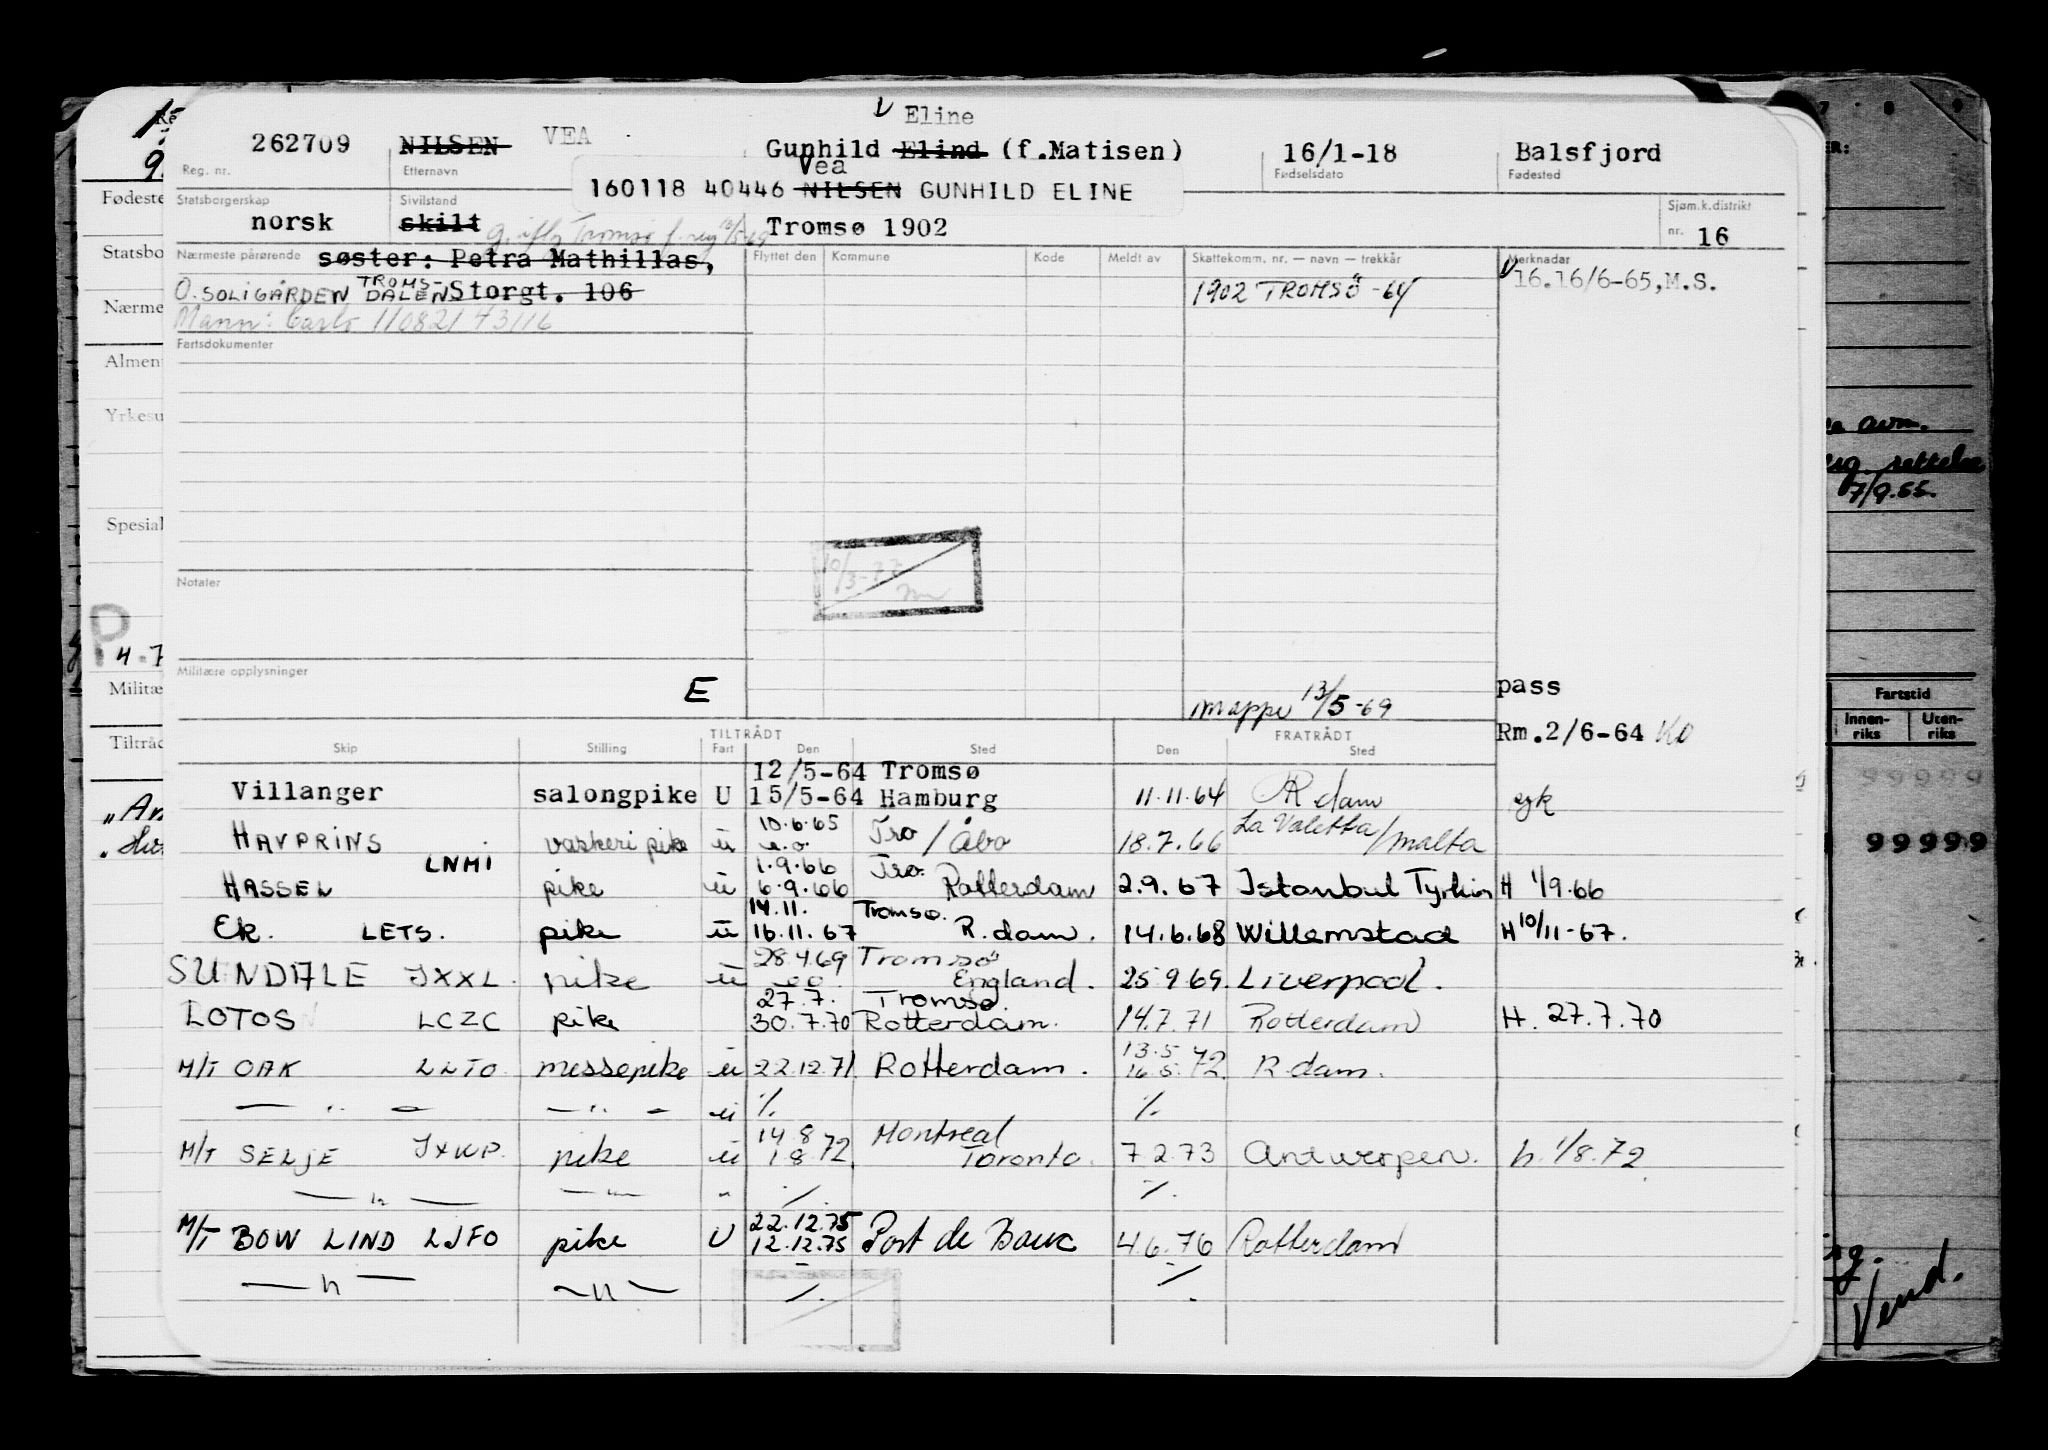 Eline
262709 NILSEN VEA Gunhild Elind (f.Matisen) 16/1-18 Balsfjord
Reg. nr. Etternavn Vea Fødselsdato Fødested
160118 40446 NILSEN GUNHILD ELINE
Statsborgerskap Sivilstand Sjøm.k.distrikt
norsk skilt Tromsø 1902 nr. 16
Nærmeste pårørende søster: Petra Mathillas, Flyttet den Kommune Kode Meldt av Skattekomm. nr. — navn — trekkår Merknader
O. SOLIGÅRDEN TROMSDALEN Storgt. 106 1902 TROMSÖ -64 16.16/6-65,M.S.
Mann: Carlo 110821 43116
Fartsdokumenter
10/3-77
Notater
Militære opplysninger
E pass
mappe 13/5-69
Rm.2/6-64
TILTRÅDT FRATRÅDT
Skip Stilling Fart Den Sted Den Sted
12/5-64 Tromsø
Villanger salongpike U 15/5-64 Hamburg 11.11.64 R dam syk
10.6.65 Tro La Valetta
HAVPRINS vaskeri pike u / Åbo 18.7.66 /Malta
LNMI 1.9.66 Tro.
HASSEL pike u 6.9.66 Rotterdam 2.9.67 Istanbul H 1/9.66
14.11. Tromsø.
Ek. LETS. pike u 16.11.67 R.dam. 14.6.68 Willemstad H 10/11-67.
28.4.69 Tromsö
SUNDALE JXXL. pike u England. 25.9.69. Liverpool.
27.7. Tromsø
LOTOS LCZC pike 30.7.70 Rotterdam. 14.7.71 Rotterdam H. 27.7.70
13.5
M/T OAK LLTO messepike u 22.12.71. Rotterdam. 16.5.72 R dam.
— " — — " — u ./. ./.
14.8 Montreal
M/T SELJE JXWP. pike u 1.8.72. Toronto. 7.2.73 Antwerpen. h. 1/8.72
— " — — " — " ./. ./.
22.12.75
M/T BOW LIND LJFO pike U 12.12.75 Port de Bouc 4.6.76 Rotterdam
— " — — " — ./. ./.
Fødeste
Statsbo
Nærme
Almen
Yrkesu
Spesial
P
4.7
Militæ
Tiltråd
7 8 9
avm.
7/9.55.
Fartstid
Innen-riks Uten-riks
99999
99999
Vend.